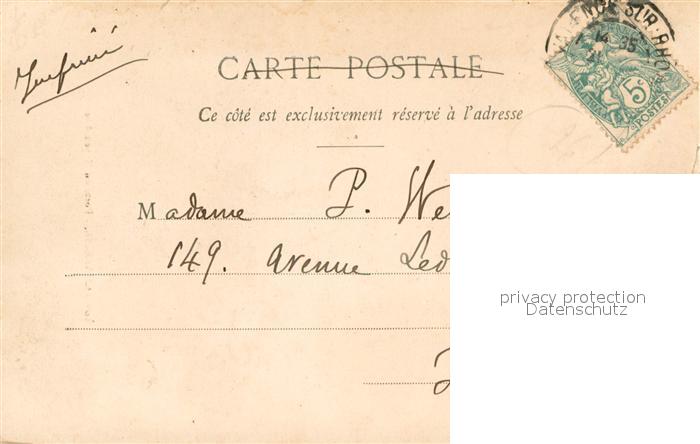 Imprimé
CARTE POSTALE
Ce côté est exclusivement réservé à l'adresse
Madame P. We
149. Avenue Led
privacy protection
Datenschutz
VALENCE-SUR-RHO
14 05
5c
POSTES